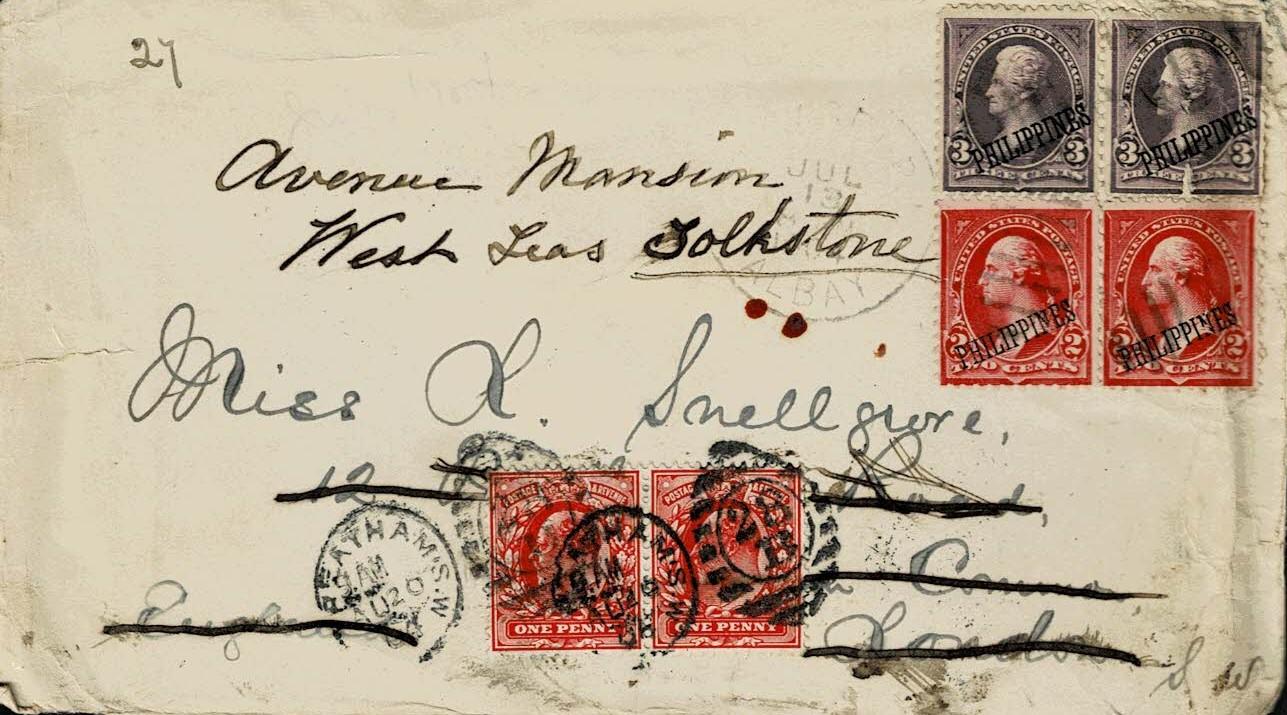 27
UNITED STATES POSTAGE UNITED STATES POSTAGE
PHILIPPINES PHILIPPINES
3 3 3 3
THREE CENTS
Avenue Mansion
West Leas Folkstone
JUL
13
ALBAY
UNITED STATES POSTAGE UNITED STATES POSTAGE
PHILIPPINES PHILIPPINES
2 2 2
TWO CENTS
Miss L. Snellgrove,
12 Road,
POSTAGE REVENUE POSTAGE
STREATHAM S.W.
AM
20
England
ONE PENNY ONE PENNY
London S W